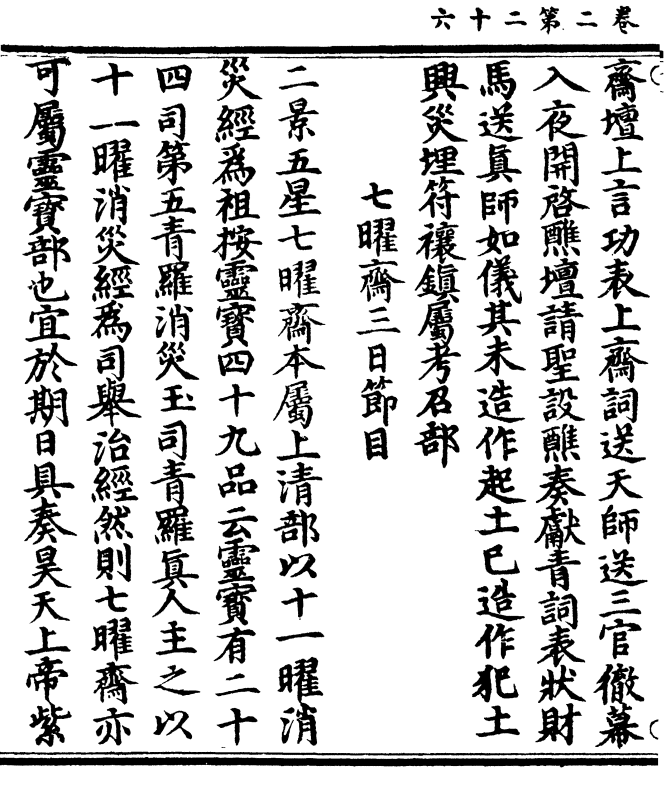 卷二第二十六
齋壇上言功表上齋詞送天師送三官徹幕
入夜開啓醮壇請聖設醮奏獻青詞表狀財
馬送眞師如儀其未造作起土已造作犯土
興災埋符禳鎭屬考召部
七曜齋三日節目
二景五星七曜齋本屬上清部以十一曜消
災經爲祖按靈寳四十九品云靈寳有二十
四司第五青羅消災玉司青羅眞人主之以
十一曜消災經爲司舉治經然則七曜齋亦
可屬靈寳部也宜於期日具奏昊天上帝紫